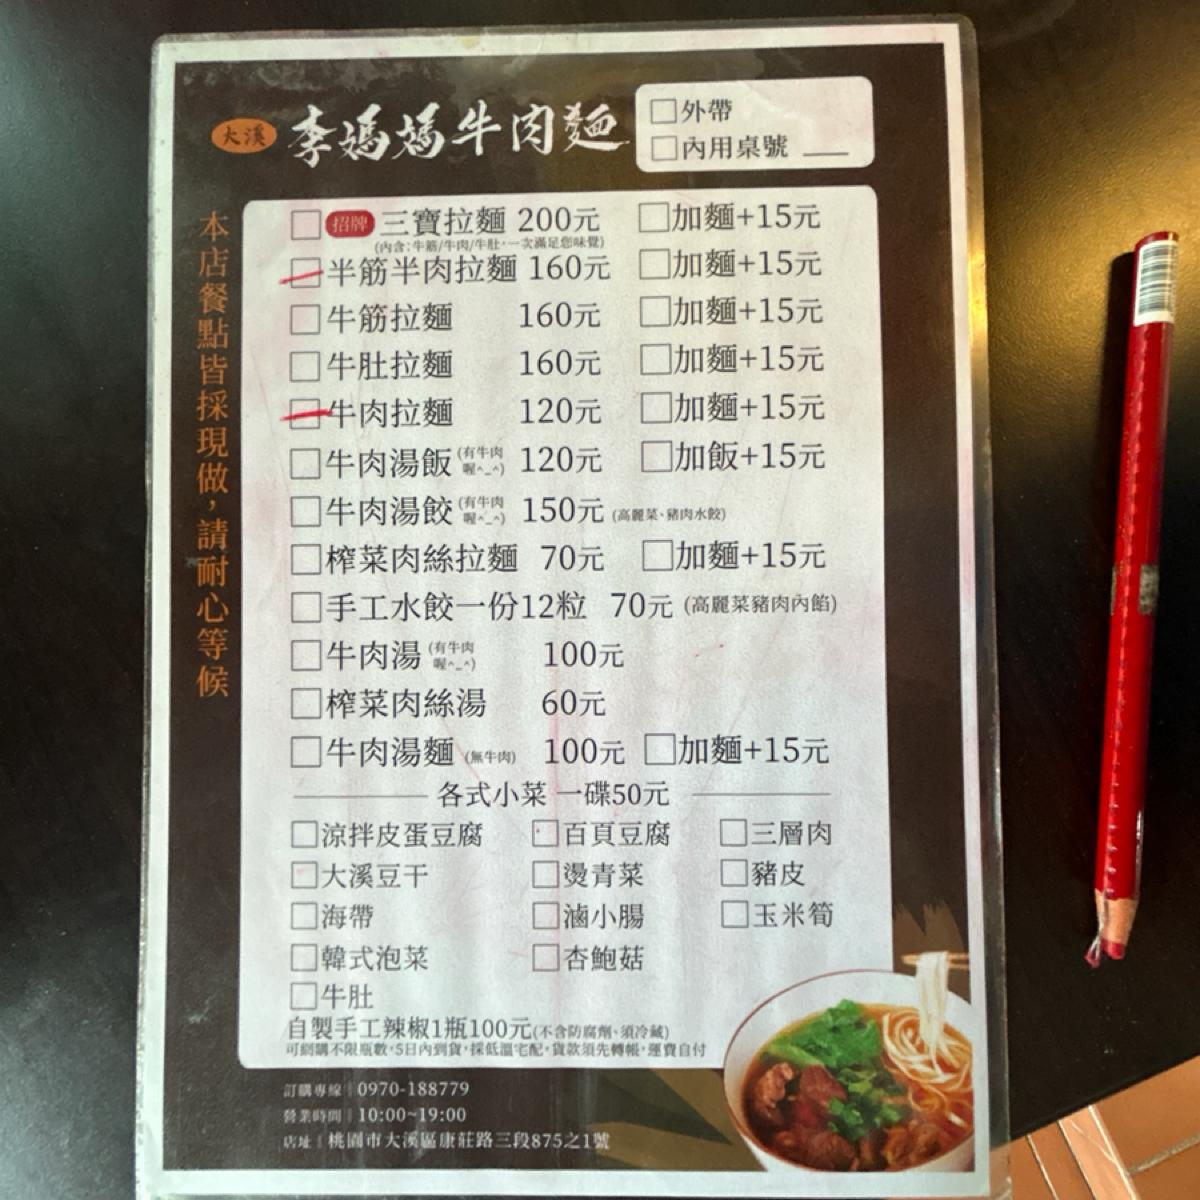 大溪 李媽媽牛肉麵
□外帶
□內用桌號
本店餐點皆採現做，請耐心等候
□招牌 三寶拉麵 200元 □加麵+15元
(內含:牛筋/牛肉/牛肚，一次滿足您味覺)
□半筋半肉拉麵 160元 □加麵+15元
□牛筋拉麵 160元 □加麵+15元
□牛肚拉麵 160元 □加麵+15元
□牛肉拉麵 120元 □加麵+15元
□牛肉湯飯 (有牛肉喔^_^) 120元 □加飯+15元
□牛肉湯餃 (有牛肉喔^_^) 150元 (高麗菜、豬肉水餃)
□榨菜肉絲拉麵 70元 □加麵+15元
□手工水餃一份12粒 70元 (高麗菜豬肉內餡)
□牛肉湯 (有牛肉喔^_^) 100元
□榨菜肉絲湯 60元
□牛肉湯麵 (無牛肉) 100元 □加麵+15元
各式小菜 一碟50元
□涼拌皮蛋豆腐 □百頁豆腐 □三層肉
□大溪豆干 □燙青菜 □豬皮
□海帶 □滷小腸 □玉米筍
□韓式泡菜 □杏鮑菇
□牛肚
自製手工辣椒1瓶100元(不含防腐劑、須冷藏)
可網購不限瓶數，5日內到貨，採低溫宅配，貨款須先轉帳，運費自付
訂購專線｜0970-188779
營業時間｜10:00~19:00
店址｜桃園市大溪區康莊路三段875之1號